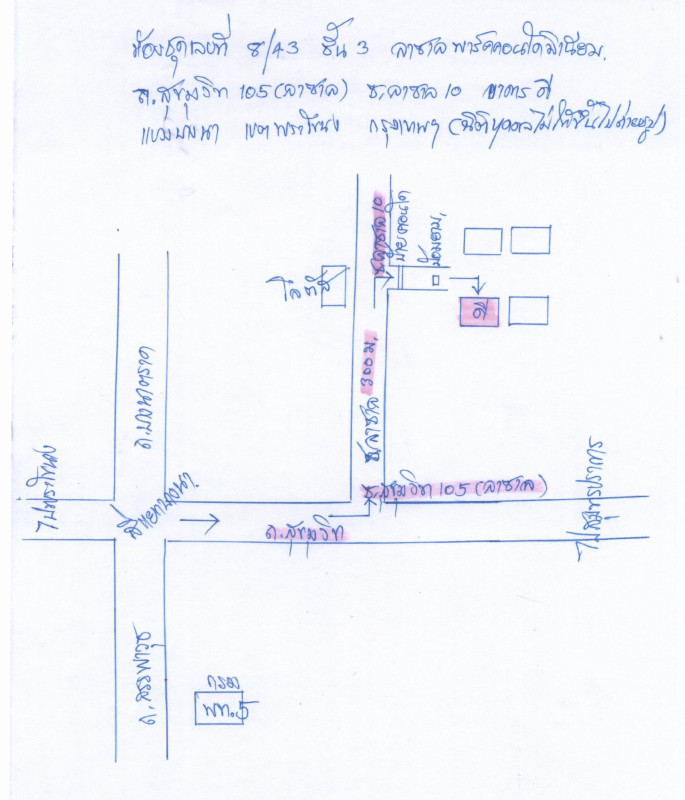 ห้องชุดเลขที่ 8/43 ชั้น 3 ลาซาลพาร์คคอนโดมิเนียม.
ถ.สุขุมวิท 105 (ลาซาล) ซ.ลาซาล 10 อาคาร ดี
แขวงบางนา เขตพระโขนง กรุงเทพฯ (นิติบุคคลไม่ให้ขึ้นไปถ่ายรูป)
ซ.ลาซาล 10
ป้ายคอนโด
ป้อมยาม.
โลตัส
ดี
ถ.บางนาตราด
ซ.ลาซาล 300 ม.
ไปพระโขนง
สี่แยกบางนา.
ซ.สุขุมวิท 105 (ลาซาล)
ถ.สุขุมวิท
ไปสมุทรปราการ
ถ.สรรพาวุธ
กรม
พท.5